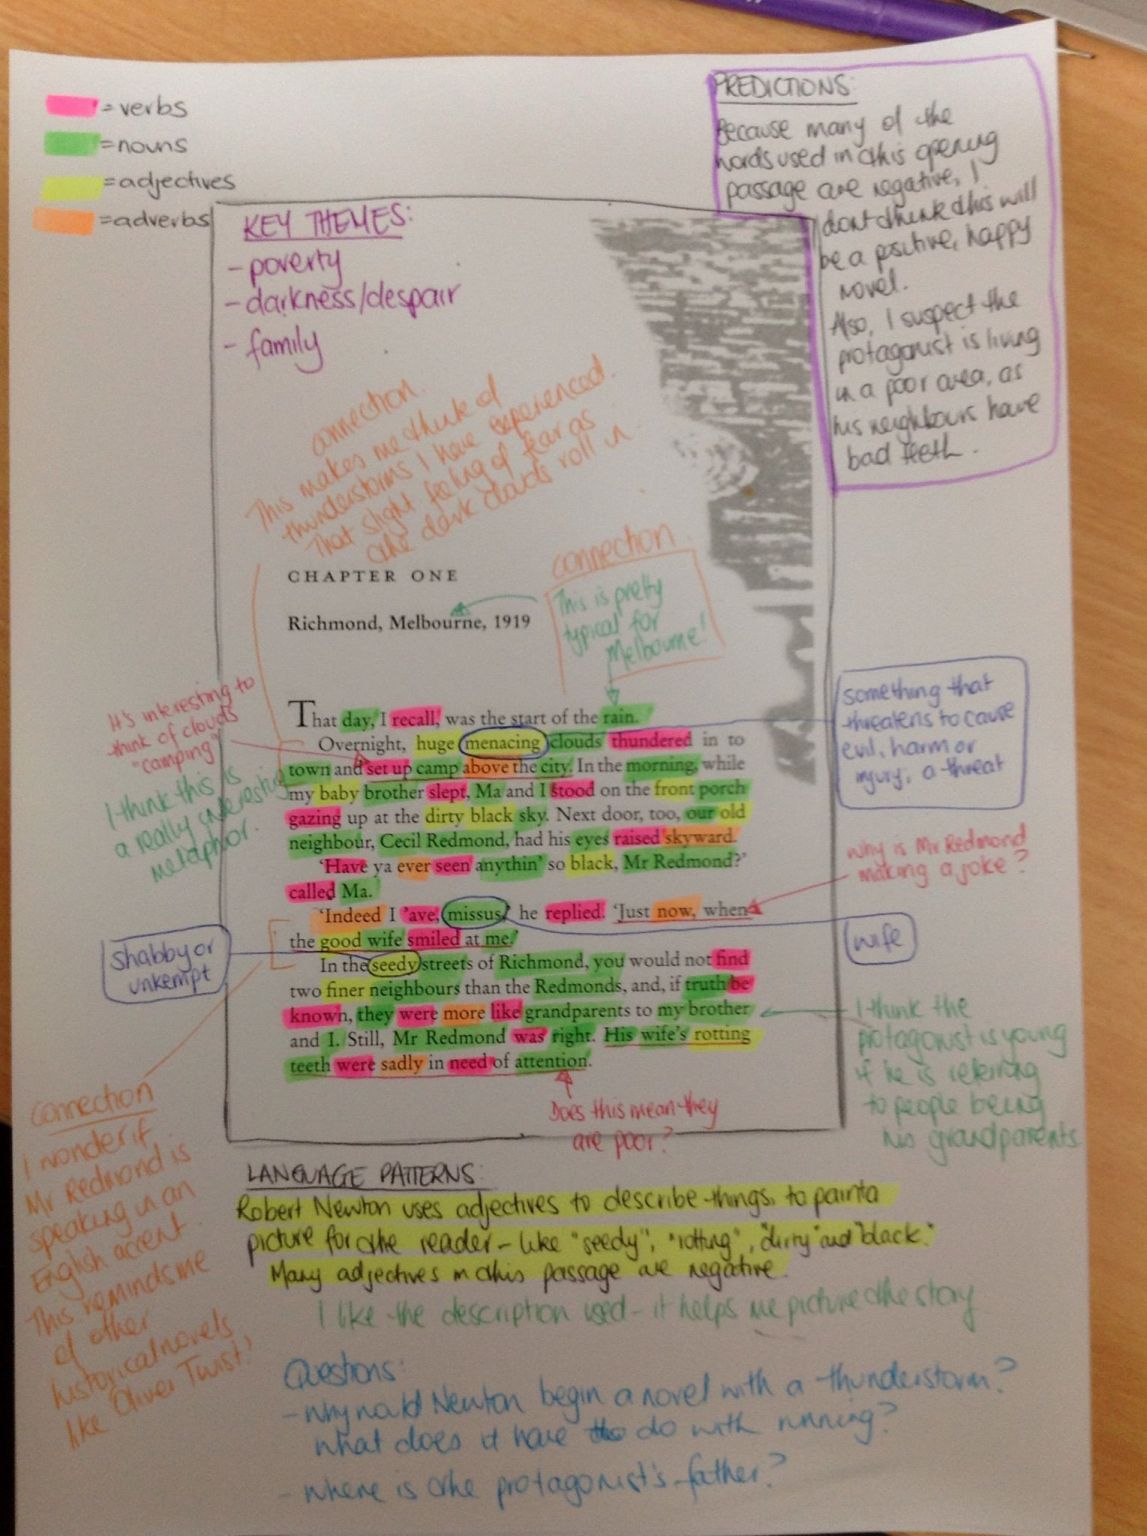 = verbs
= nouns
= adjectives
= adverbs
PREDICTIONS:
Because many of the
words used in this opening
passage are negative, I
dont think this will
be a positive, happy
novel.
Also, I suspect the
protagonist is living
in a poor area, as
his neighbours have
bad teeth.
KEY THEMES:
- poverty
- darkness/despair
- family
connection
This makes me think of
thunderstorms I have experienced.
That slight feeling of fear as
the dark clouds roll in
CHAPTER ONE
Richmond, Melbourne, 1919
connection
This is pretty
typical for
Melbourne!
That day, I recall, was the start of the rain.
Overnight, huge menacing clouds thundered in to
town and set up camp above the city. In the morning, while
my baby brother slept, Ma and I stood on the front porch
gazing up at the dirty black sky. Next door, too, our old
neighbour, Cecil Redmond, had his eyes raised skyward.
'Have ya ever seen anythin' so black, Mr Redmond?'
called Ma.
'Indeed I 'ave, missus,' he replied. 'Just now, when
the good wife smiled at me.'
In the seedy streets of Richmond, you would not find
two finer neighbours than the Redmonds, and, if truth be
known, they were more like grandparents to my brother
and I. Still, Mr Redmond was right. His wife's rotting
teeth were sadly in need of attention.
It's interesting to
think of clouds
"camping"
I think this is
a really interesting
metaphor.
something that
threatens to cause
evil, harm or
injury, a threat
Why is Mr Redmond
making a joke?
wife
shabby or
unkempt
I think the
protagonist is young
if he is referring
to people being
his grandparents
Does this mean they
are poor?
connection
I wonder if
Mr Redmond is
speaking in an
English accent.
This reminds me
of other
historical novels
like Oliver Twist!
LANGUAGE PATTERNS:
Robert Newton uses adjectives to describe things, to paint a
picture for the reader - like "seedy", "rotting", "dirty" and "black."
Many adjectives in this passage are negative.
I like the description used - it helps me picture the story
Questions:
- why would Newton begin a novel with a thunderstorm?
what does it have to do with running?
- where is the protagonist's father?